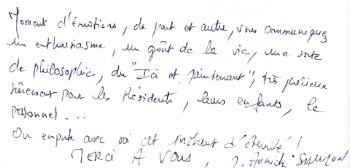 Moment d'émotions, de part et autre, vous communiquez
un enthousiasme, un goût de la vie, une sorte
de philosophie, du "Ici et maintenant", très précieux
sûrement pour les Résidents, leurs enfants, le
personnel ...
On emporte avec soi cet instant d'éternité !
Merci à Vous,